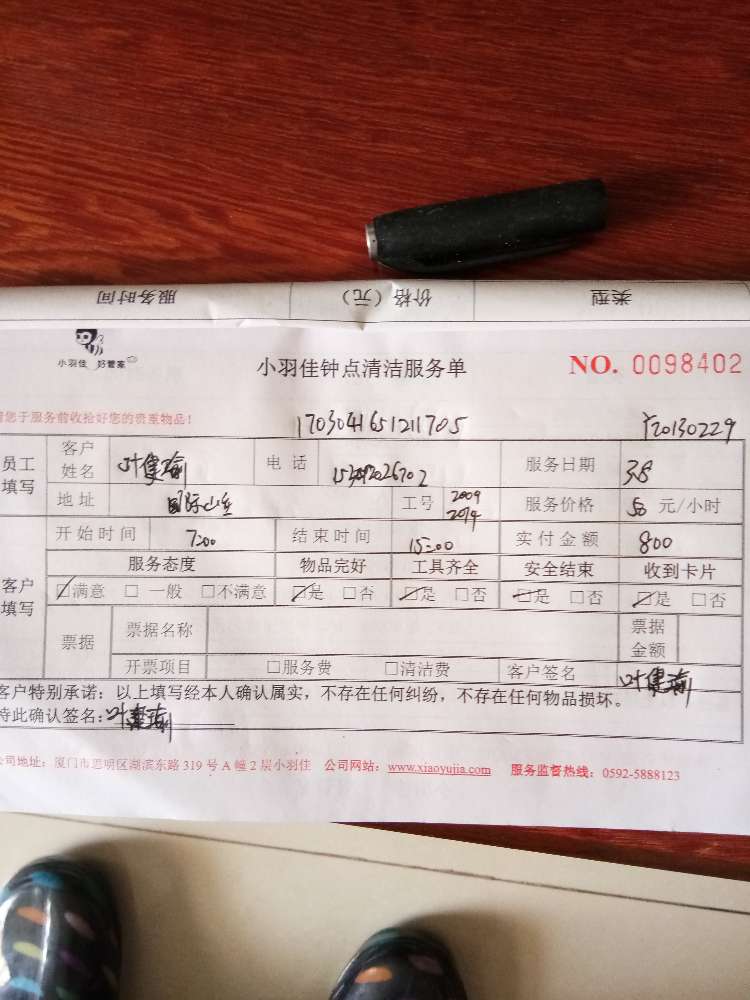 服务时间 价格（元） 类型
小羽佳 好管家
小羽佳钟点清洁服务单 NO. 0098402
您于服务前收拾好您的贵重物品！ 1703041651211705 20130229
员工填写 客户姓名 叶健瑜 电话 服务日期 3.8
地址 国际山庄 工号 2009 2014 服务价格 50 元/小时
开始时间 7:00 结束时间 15:00 实付金额 800
客户填写 服务态度 物品完好 工具齐全 安全结束 收到卡片
☑满意 □一般 □不满意 ☑是 □否 ☑是 □否 ☑是 □否 ☑是 □否
票据 票据名称 票据金额
开票项目 □服务费 □清洁费 客户签名 叶健瑜
客户特别承诺：以上填写经本人确认属实，不存在任何纠纷，不存在任何物品损坏。
特此确认签名：叶健瑜
公司地址：厦门市思明区湖滨东路 319 号 A 幢 2 层小羽佳 公司网站：www.xiaoyujia.com 服务监督热线：0592-5888123